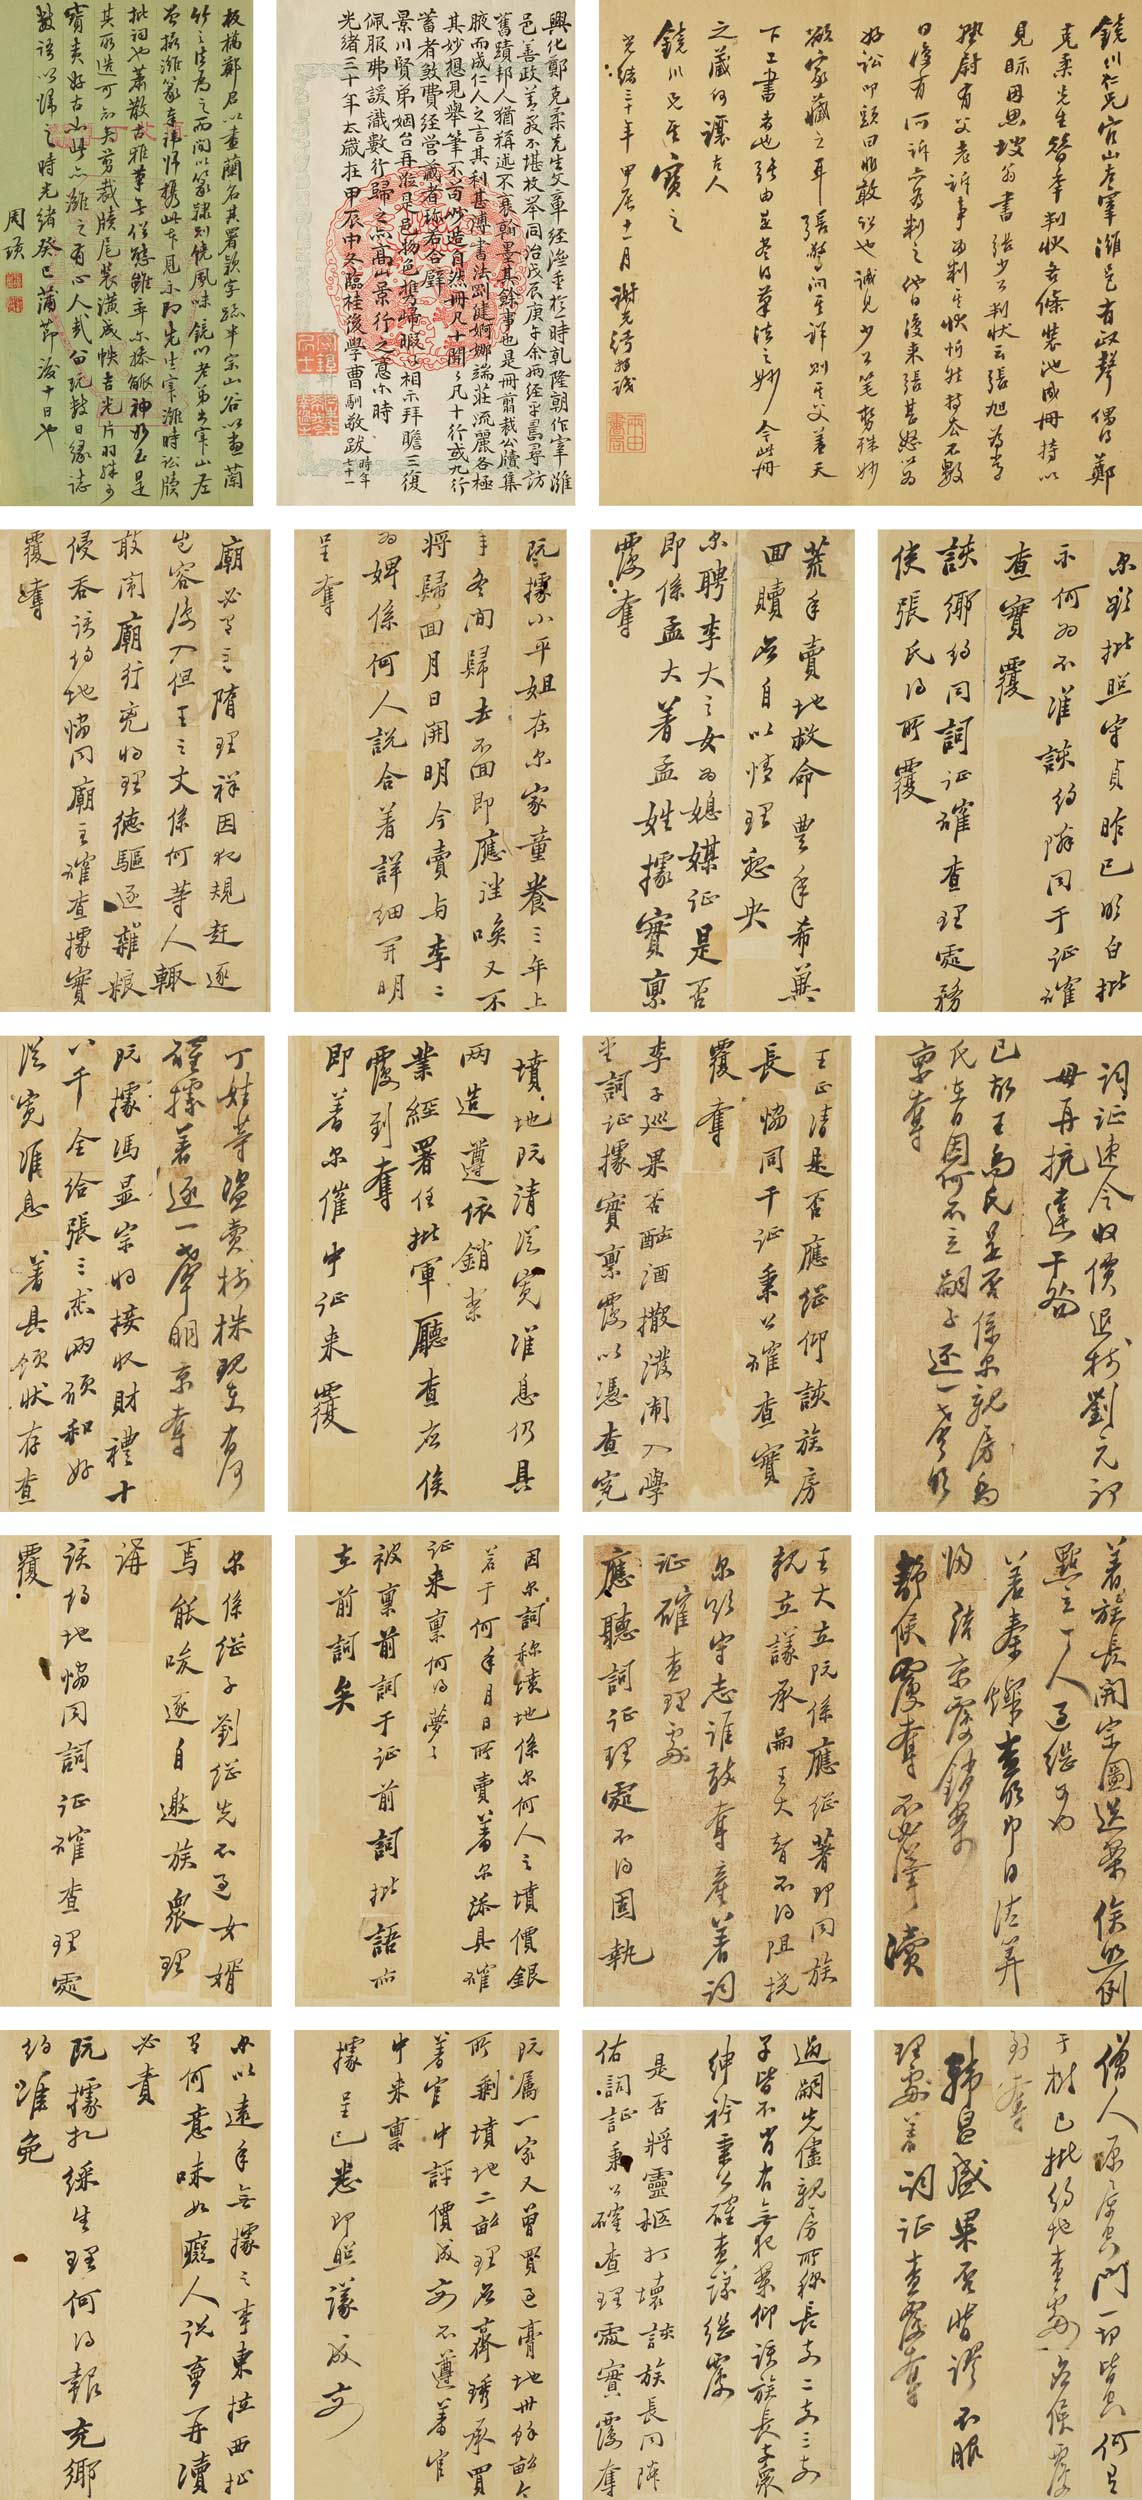 鏡川仁兄官山左宰濰邑有政聲偶得鄭
克柔先生當年判狀若條裝池成冊持以
見眎因思坡翁書張少公判狀云張旭為常
熟尉有父老訴事為判其狀忻然持去不數
日復有所訴亦為判之他日復來張甚怒以為
好訟叩頭曰非敢訟也誠見少公筆勢殊妙
欲家藏之耳張驚問其詳則其父蓋天
下工書者也張由是盡得筆法之妙今此冊
之藏何讓古人
鏡川兄其寶之
光緒三十年甲辰十一月謝元拜識
興化鄭克柔先生文章經濟重於一時乾隆朝作宰濰
邑善政美不堪枚舉同治戊辰庚午余兩經尋訪
舊蹟邦人猶稱述不衰翰墨其餘事也是冊翦裁公牘集
腋而成仁人之言其利甚溥書法剛健婀娜端莊流麗各極
其妙想見舉筆不苟妙造自然冊凡十開凡十行或九行
蓄者致費經營藏者珍若合璧
景川賢弟姻台再涖是邑物色攜歸暇以相示拜瞻三復
佩服弗諼識數行歸之亦高山景行之意尒時
光緒三十年太歲在甲辰中冬臨桂後學曹馴敬跋時年七十一
板橋鄭君以畫蘭名其署款字孫半宗山谷以畫蘭
竹之法為之而間以篆隸別饒風味鏡川老弟出宰山左
曾攝濰篆奉諱歸攜此卷見示即先生宰濰時訟牘
批詞也蕭散古雅筆無俗態雖率尒揍觚神妙
其所造可知矣剪裁牘尾裝潢成帙吉光片羽
寶貴好古此亦濰之有心人玩數日緣誌
數語以歸之時光緒癸巳蒲節後十日也
周璜
尒照批照守貞昨已明白批
示何為不准該約隣同干証確
查實覆
該鄉約同詞証確查理處務
使張氏得所覆
荒年賣地救命豊年希冀
回贖當自以情理懇央
尔聘李大之女為媳媒証是否
即係孟大著孟姓據實稟
覆奪
既據小平姐在尔家童養三年上
年冬間歸去不回即應往喚又不
將歸回月日開明今賣与李二
為婢係何人説合著詳細开明
呈奪
廟必有主隋理祥因犯規赶逐
豈容復入但王之丈係何等人輒
敢鬧廟行兇將理德驅逐雜糧
侵吞該約地協同廟主確查據實
覆奪
詞証速令收價退树劉元初
毋再抗違干咎
已故王高氏是否係尔親房高
氏在日因何不立嗣子逐一聲明
稟奪
王正清是否應继仰該族房
長協同干証秉公確查實
覆奪
李子巡果否酗酒撒潑鬧入學
堂詞証據實稟覆以憑查究
墳地既請從寬准息仍具
两造遵依銷案
業經署任批軍廳查应俟
覆到奪
即著尔催中证来覆
丁姓等盜賣樹株現在有何
確據著逐一聲明稟奪
既據馮显宗將接收財禮十
八千全給張三亦兩願和好
從寬准息著具領狀存查
著族長開宗圖送案俟照例
點立一人过继可也
著秦燦查明即日清算
归結稟覆銷案
静候覆奪不必瀆
王大立既係應继著即同族
親立議承嗣王大智不得阻撓
尔既守志誰敢奪產著詞
証確查理處
應聽詞証理處不得固執
因尔詞称墳地係尔何人之墳價銀
若干何年月日所賣著尔添具確
证来稟何得夢夢
被稟前詞干証前詞批語亦
在前詞矣
尔係继子劉继先不过女婿
焉能唆逐自邀族衆理
講
該約地協同詞証確查理處
覆
僧人原屬空門一切皆空何有
于樹已批約地查處静候覆
到奪
韩昌盛果否賠謬不服
理處著詞证查覆奪
過嗣先儘親房所称長支二支三支
子皆不肖有無犯案仰該族長衆
紳衿秉公確查議继覆
是否將靈柩打壞該族長同隣
佑詞証秉公確查理處實覆奪
既屬一家又曾買过膏地卅餘畝今
所剩墳地二畝理應齊琇承買
著官中評價成交不遵著官
中来稟
據呈已悉即照議成交
尔以遠年無據之事東拉西扯
有何意味如癡人説夢再瀆
必責
既據扎綵生理何得報充鄉
約准免